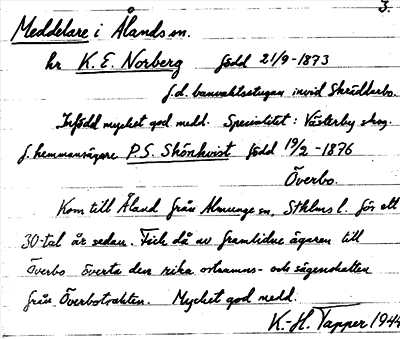 3.
Meddelare i Ålands sn.
hr K. E. Norberg född 21/9-1873
f.d. banvaktsstugan invid Skräddarbo.
Infödd mycket god medd. Specialitet: Västerby skog.
f. hemmansägare P. S. Skönkvist född 19/2-1876
Överbo.
Kom till Åland från Almunge sn, Sthlms l. för ett
30-tal år sedan. Fick då av framlidne ägaren till
Överbo överta den rika ortnamns- och sägenskatten
från Överbotrakten. Mycket god medd.
K.-H. Tapper 1944